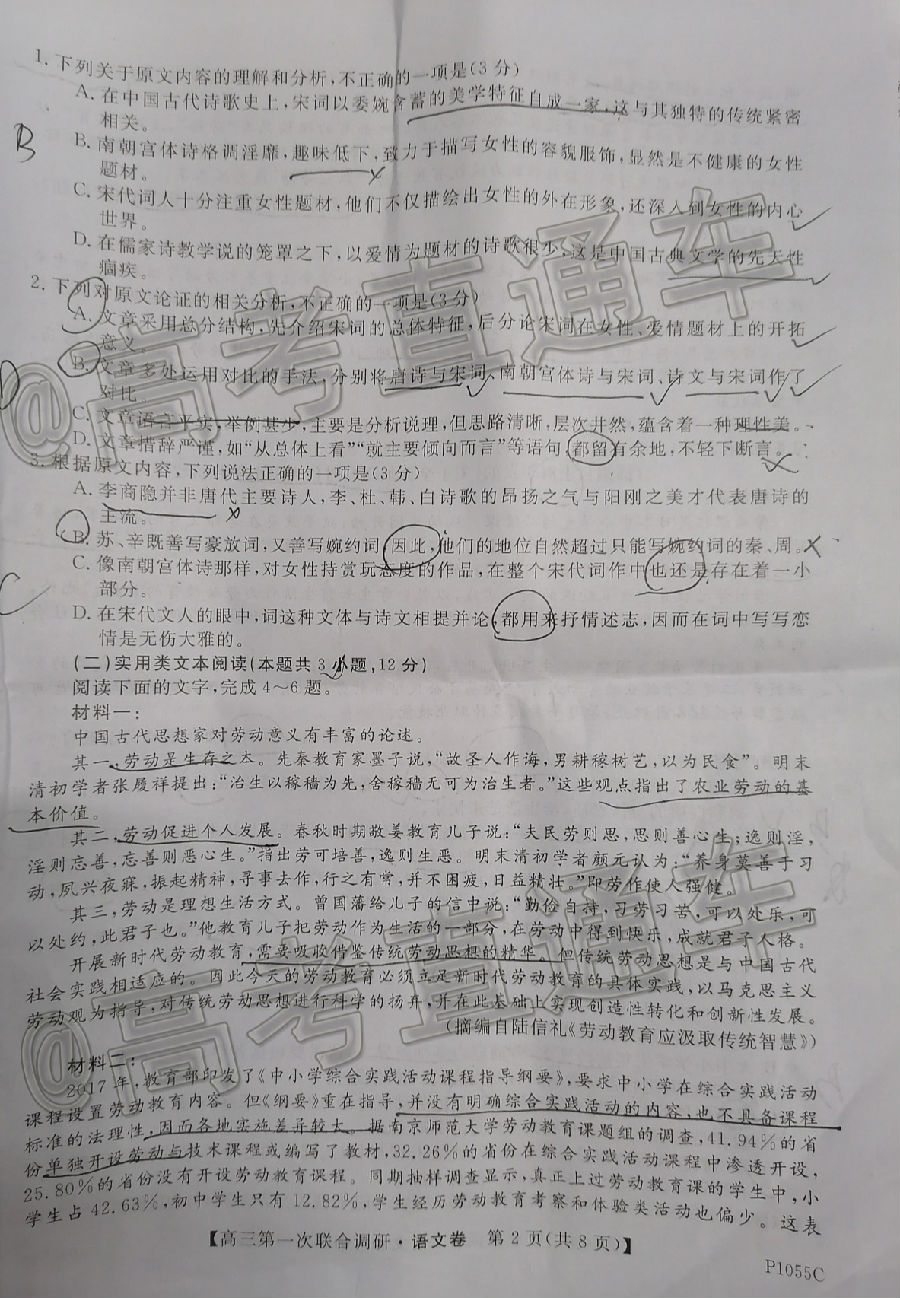 1. 下列关于原文内容的理解和分析,不正确的一项是(3分)
A. 在中国古代诗歌史上,宋词以委婉含蓄的美学特征自成一家,这与其独特的传统紧密
相关。
B
B. 南朝宫体诗格调淫靡,趣味低下,致力于描写女性的容貌服饰,显然是不健康的女性
题材。
C. 宋代词人十分注重女性题材,他们不仅描绘出女性的外在形象,还深入到女性的内心
世界。
D. 在儒家诗教学说的笼罩之下,以爱情为题材的诗歌很少,这是中国古典文学的先天性
痼疾。
2. 下列对原文论证的相关分析,不正确的一项是(3分)
A. 文章采用总分结构,先介绍宋词的总体特征,后分论宋词在女性、爱情题材上的开拓
意义。
B. 文章多处运用对比的手法,分别将唐诗与宋词、南朝宫体诗与宋词、诗文与宋词作了
对比。
C. 文章语言平实,举例甚少,主要是分析说理,但思路清晰,层次井然,蕴含着一种理性美。
D. 文章措辞严谨,如“从总体上看”“就主要倾向而言”等语句,都留有余地,不轻下断言。
3. 根据原文内容,下列说法正确的一项是(3分)
A. 李商隐并非唐代主要诗人,李、杜、韩、白诗歌的昂扬之气与阳刚之美才代表唐诗的
主流。
B. 苏、辛既善写豪放词,又善写婉约词,因此,他们的地位自然超过只能写婉约词的秦、周。
C. 像南朝宫体诗那样,对女性持赏玩态度的作品,在整个宋代词作中也还是存在着一小
部分。
C
D. 在宋代文人的眼中,词这种文体与诗文相提并论,都用来抒情述志,因而在词中写写恋
情是无伤大雅的。
(二)实用类文本阅读(本题共3小题,12分)
阅读下面的文字,完成4～6题。
材料一:
中国古代思想家对劳动意义有丰富的论述。
其一,劳动是生存之本。先秦教育家墨子说,“故圣人作海,男耕稼树艺,以为民食”。明末
清初学者张履祥提出:“治生以稼穑为先,舍稼穑无可为治生者。”这些观点指出了农业劳动的基
本价值。
其二,劳动促进个人发展。春秋时期敬姜教育儿子说:“夫民劳则思,思则善心生;逸则淫,
淫则忘善,忘善则恶心生。”指出劳可培善,逸则生恶。明末清初学者颜元认为:“养身莫善于习
动,夙兴夜寐,振起精神,寻事去作,行之有常,并不困疲,日益精壮。”即劳作使人强健。
其三,劳动是理想生活方式。曾国藩给儿子的信中说:“勤俭自持,习劳习苦,可以处乐,可
以处约,此君子也。”他教育儿子把劳动作为生活的一部分,在劳动中得到快乐,成就君子人格。
开展新时代劳动教育,需要吸收借鉴传统劳动思想的精华。但传统劳动思想是与中国古代
社会实践相适应的。因此今天的劳动教育必须立足新时代劳动教育的具体实践,以马克思主义
劳动观为指导,对传统劳动思想进行科学的扬弃,并在此基础上实现创造性转化和创新性发展。
(摘编自陆信礼《劳动教育应汲取传统智慧》)
材料二:
2017年,教育部印发了《中小学综合实践活动课程指导纲要》,要求中小学在综合实践活动
课程设置劳动教育内容。但《纲要》重在指导,并没有明确综合实践活动的内容,也不具备课程
标准的法理性,因而各地实施差异较大。据南京师范大学劳动教育课题组的调查,41.94%的省
份单独开设劳动与技术课程或编写了教材,32.26%的省份在综合实践活动课程中渗透开设,
25.80%的省份没有开设劳动教育课程。同期抽样调查显示,真正上过劳动教育课的学生中,小
学生占42.63%,初中学生只有12.82%,学生经历劳动教育考察和体验类活动也偏少。这表
【高三第一次联合调研·语文卷 第2页(共8页)】
P1055C
@高考直通车
@高考直通车